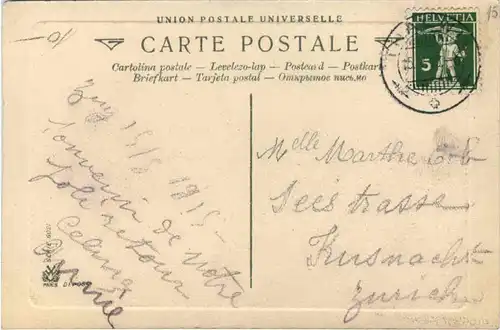 UNION POSTALE UNIVERSELLE
CARTE POSTALE
Cartolina postale — Levelezo-lap — Postcard — Postkart
Briefkart — Tarjeta postal — Открытое письмо
HELVETIA
5
15
Zug 15/5 1915
Souvenir de notre
joli retour
Melle Marthe
Seestrasse
Kusnacht
Zurich
PARIS DÉPOSÉ